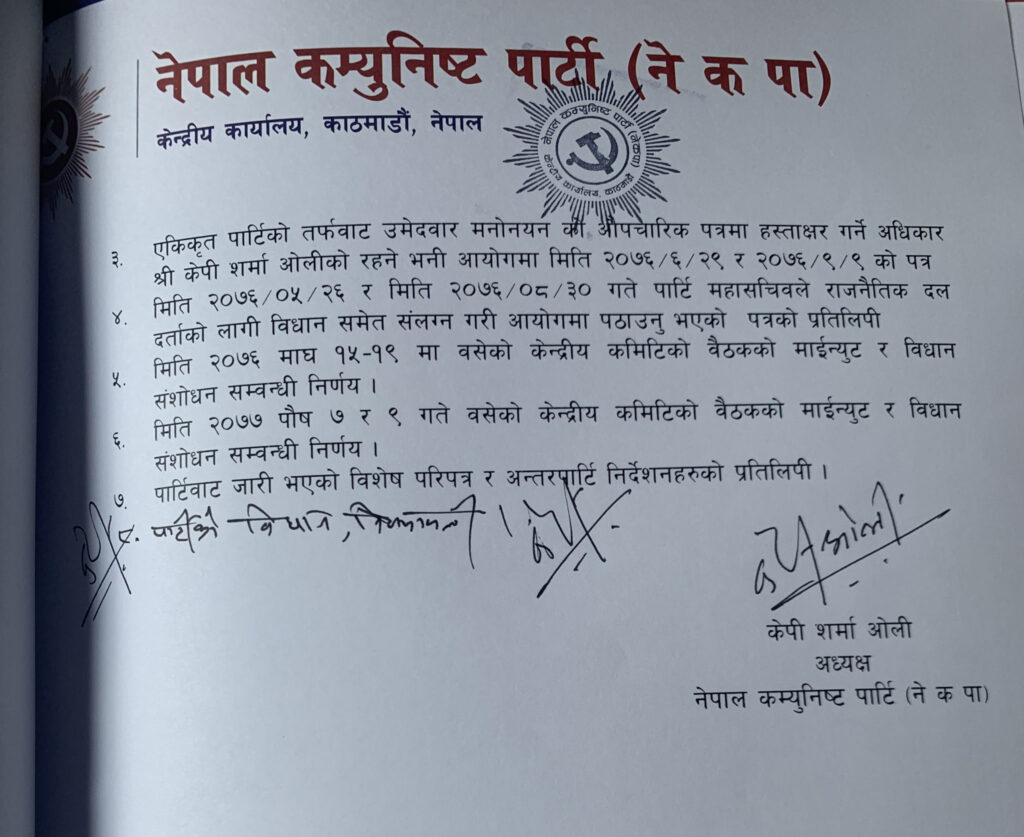 नेपाल कम्युनिष्ट पार्टी (ने क पा)
केन्द्रीय कार्यालय, काठमाडौं, नेपाल
नेपाल कम्युनिष्ट पार्टी (नेकपा)
केन्द्रीय कार्यालय, काठमाडौं
३. एकिकृत पार्टिको तर्फवाट उमेदवार मनोनयन को औपचारिक पत्रमा हस्ताक्षर गर्ने अधिकार
श्री केपी शर्मा ओलीको रहने भनी आयोगमा मिति २०७६/६/२९ र २०७६/९/९ को पत्र
४. मिति २०७६/०५/२६ र मिति २०७६/०८/३० गते पार्टि महासचिवले राजनैतिक दल
दर्ताको लागी विधान समेत संलग्न गरी आयोगमा पठाउनु भएको पत्रको प्रतिलिपी
५. मिति २०७६ माघ १५-१९ मा वसेको केन्द्रीय कमिटिको वैठकको माईन्युट र विधान
संशोधन सम्वन्धी निर्णय ।
६. मिति २०७७ पौष ७ र ९ गते वसेको केन्द्रीय कमिटिको वैठकको माईन्युट र विधान
संशोधन सम्वन्धी निर्णय ।
७. पार्टिवाट जारी भएको विशेष परिपत्र र अन्तरपार्टि निर्देशनहरुको प्रतिलिपी ।
८. पार्टीको विधान, नियमावली ।
केपी शर्मा ओली
अध्यक्ष
नेपाल कम्युनिष्ट पार्टि (ने क पा)